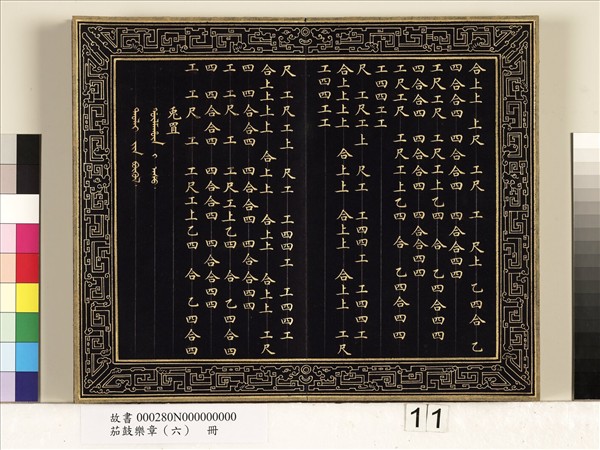 合上上 上尺 工尺 工 尺上 乙四合 乙
四合合 四合合 四合合四四
工尺工尺 工尺工上乙四 合 乙四合四四
四合合四 四合合四 四合合四四
工尺工尺 工尺工上乙四 合 乙四合四四
工四四工工
尺 工尺工上 尺工 工四四工 工四四工
合上上上上 合上上 合上上 合上上 工尺
工四四工工
尺 工尺工上 尺工 工四四工 工四四工
合上上上上 合上上 合上上 合上上 工尺
四 四合合四 四合合四 四合合四四
工 工尺 工 工尺工上乙四 合 乙四合四
四 四合合四 四合合四 四合合四四
工 工尺 工 工尺工上乙四 合 乙四合四
兎罝
故書 000280N000000000
笳鼓樂章（六） 冊
11